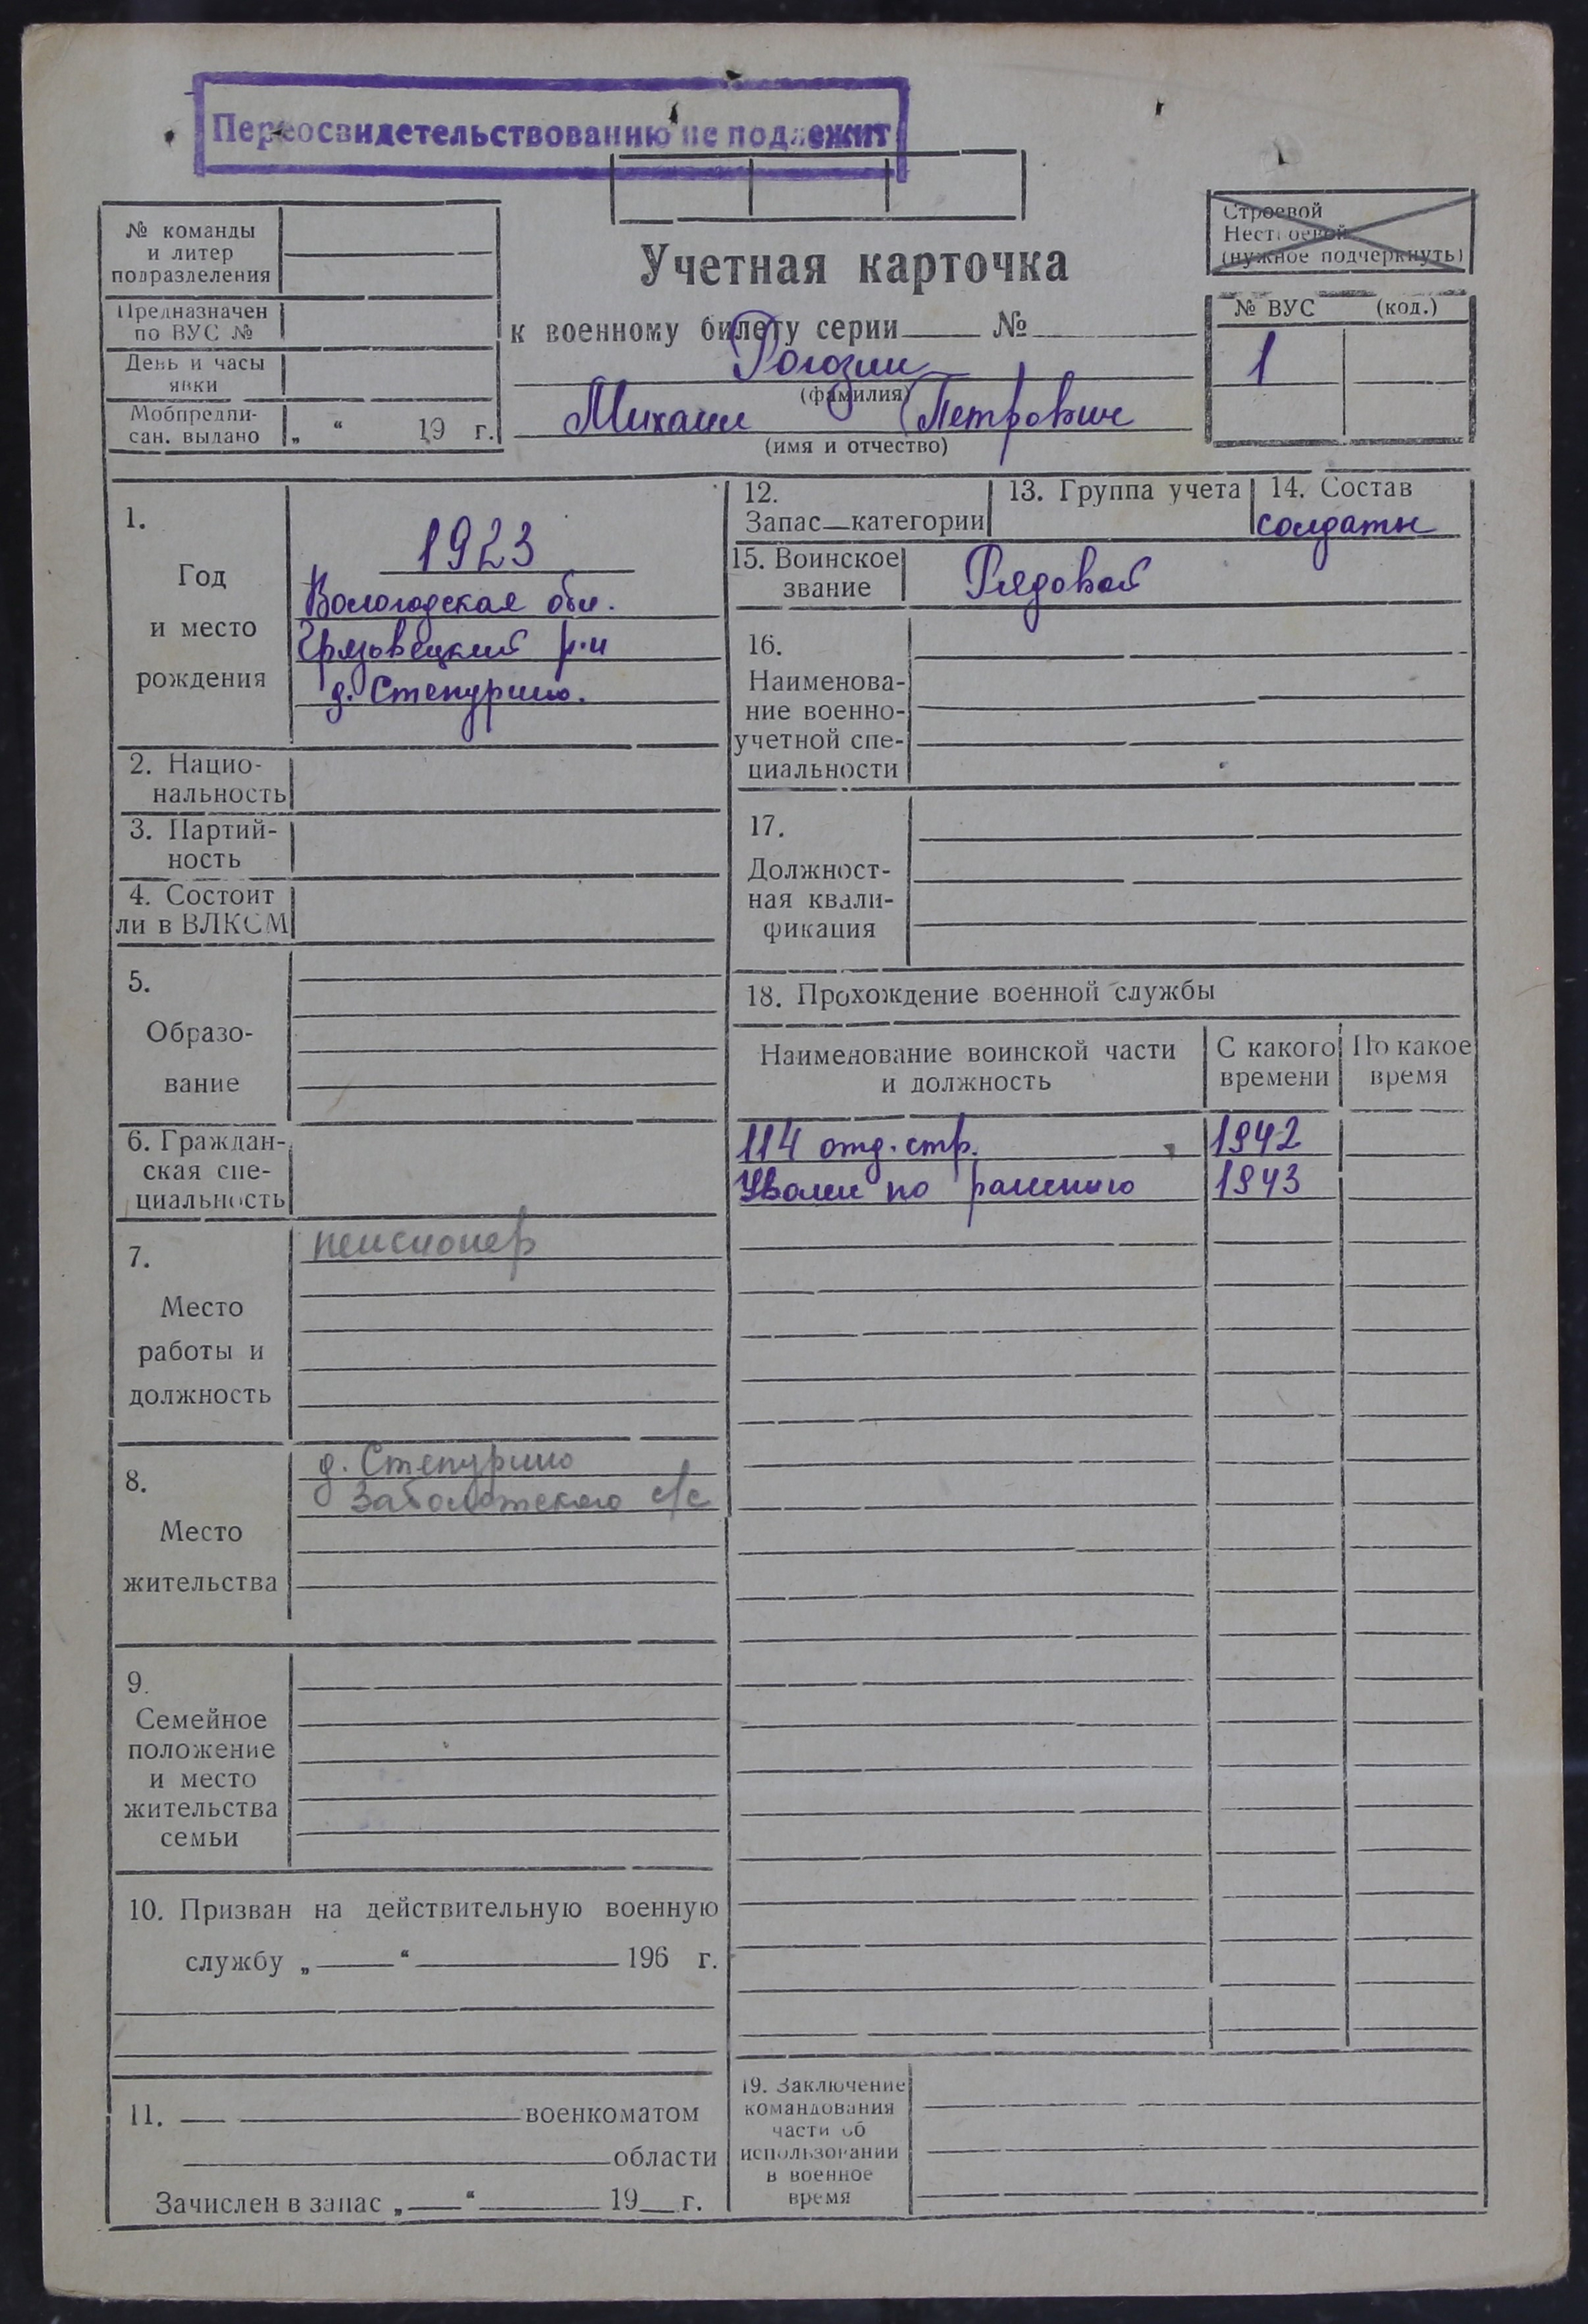 Переосвидетельствованию не подлежит
№ команды
и литер
подразделения
Предназначен
по ВУС №
День и часы
явки
Мобпредпи-
сан. выдано „ “ 19 г.
Учетная карточка
к военному билету серии №
Рогозин
(фамилия)
Михаил Петрович
(имя и отчество)
Строевой
Нестроевой
(нужное подчеркнуть)
№ ВУС (код.)
1
1.
Год
и место
рождения
1923
Вологодская обл.
Грязовецкий р-н
д. Степурино.
2. Нацио-
нальность
3. Партий-
ность
4. Состоит
ли в ВЛКСМ
5.
Образо-
вание
6. Граждан-
ская спе-
циальность
7.
Место
работы и
должность
пенсионер
8.
Место
жительства
д. Степурино
Заболотского с/с
9.
Семейное
положение
и место
жительства
семьи
10. Призван на действительную военную
службу „ “ 196 г.
11. военкоматом
области
Зачислен в запас „ “ 19 г.
12.
Запас—категории
13. Группа учета
14. Состав
солдаты
15. Воинское
звание
Рядовой
16.
Наименова-
ние военно-
учетной спе-
циальности
17.
Должност-
ная квали-
фикация
18. Прохождение военной службы
Наименование воинской части
и должность
С какого
времени
По какое
время
114 отд. стр. 1942
Уволен по ранению 1943
19. Заключение
командования
части об
использовании
в военное
время